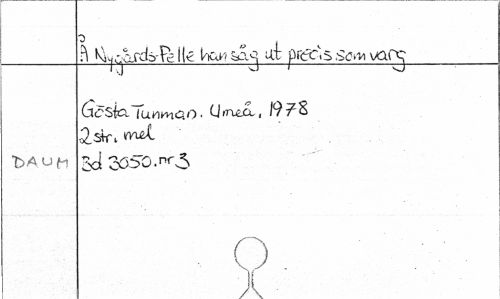 Å Nygårds-Pelle han såg ut precis som varg
Gösta Tunman. Umeå, 1978
2 str. mel
DAUM Bd 3050. nr 3